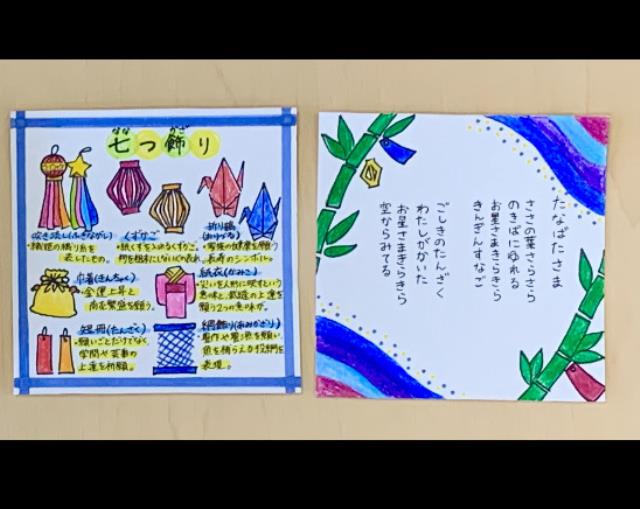 七つ飾り
なな かざ
吹き流し(ふきながし)
・織姫の織り糸を
表したもの。
くずかご
・紙くずを入れるくずかご。
物を粗末にしないしるし
折り鶴
(おりづる)
・家族の健康を願う
長寿のシンボル。
巾着(きんちゃく)
・金運上昇と
商売繁盛を願う。
紙衣(かみこ)
・災いを人形に映すという
意味と、裁縫の上達を
願う2つの意味が。
短冊(たんざく)
・願いごとだけでなく
学問や芸事の
上達を祈願。
網飾り(あみかざり)
・豊作や豊漁を願い
魚を捕らえる投網を
表現。
たなばたさま
ささの葉さらさら
のきばにゆれる
お星さまきらきら
きんぎんすなご
ごしきのたんざく
わたしがかいた
お星さまきらきら
空からみてる